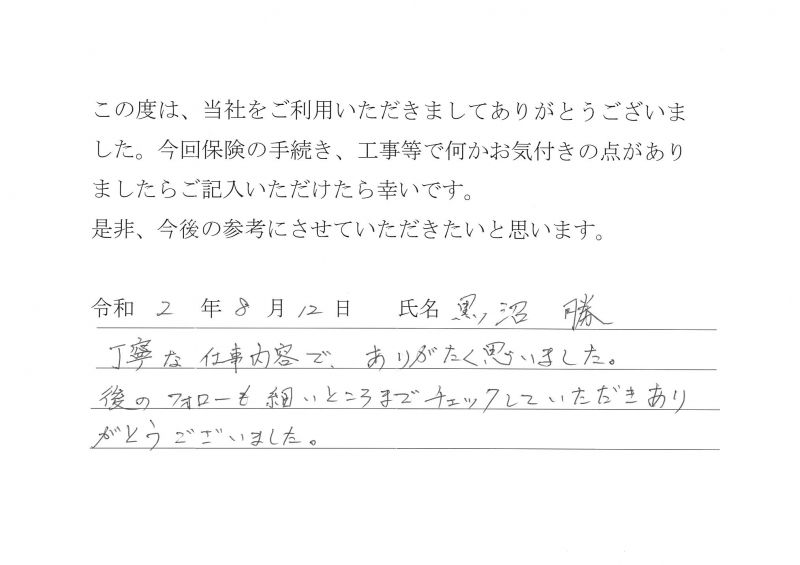 この度は、当社をご利用いただきましてありがとうございま
した。今回保険の手続き、工事等で何かお気付きの点があり
ましたらご記入いただけたら幸いです。
是非、今後の参考にさせていただきたいと思います。
令和 2 年 8 月 12 日 氏名 黒沼 勝
丁寧な仕事内容で、ありがたく思いました。
後のフォローも細いところまでチェックしていただきあり
がとうございました。